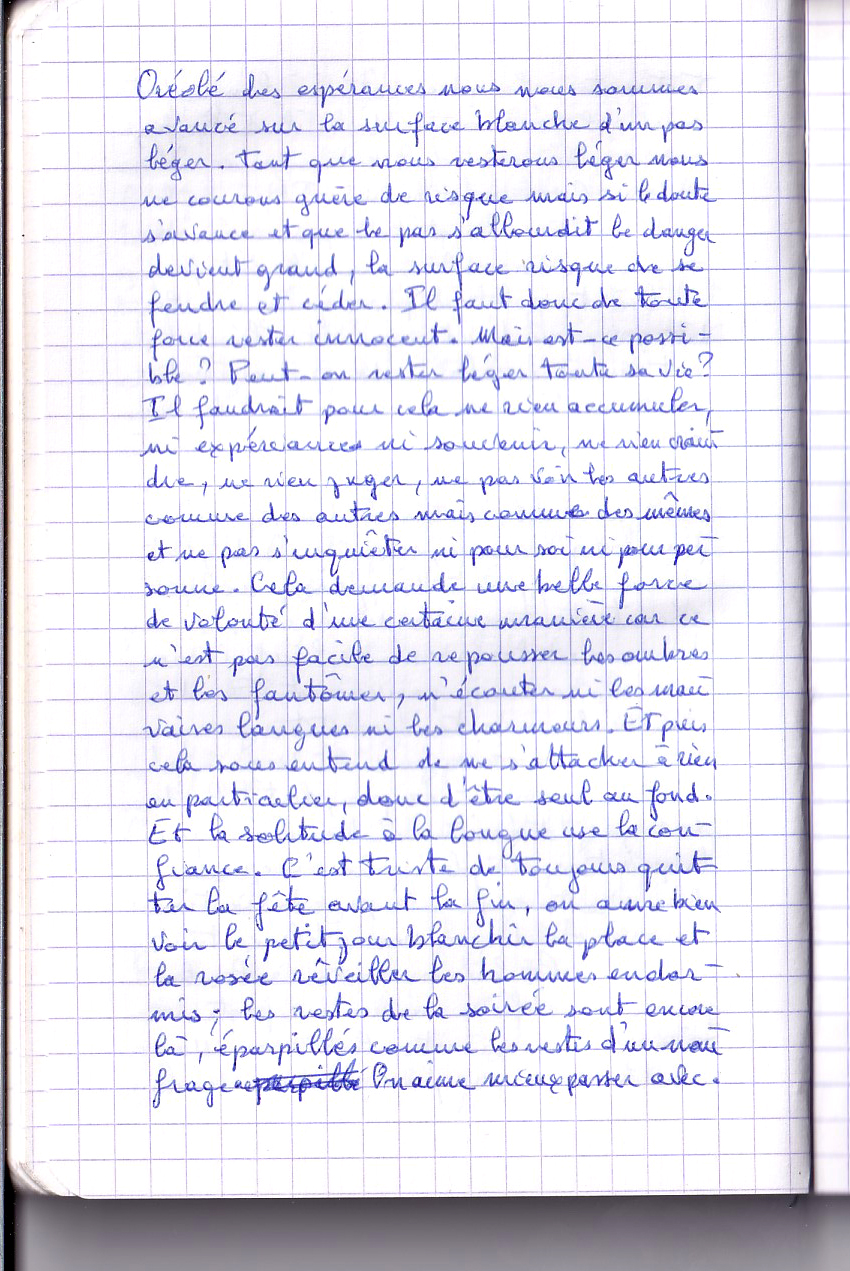 des espérances nous nous sommes
avancé sur la surface blanche d'un pas
léger. Tant que nous resterons léger nous
ne courons guère de risque mais si le doute
s'avance et que le pas s'allourdit le danger
devient grand, la surface risque de se
fendre et céder. Il faut donc de toute
force rester innocent. Mais est-ce possi-
ble ? Peut-on rester léger toute sa vie ?
Il faudrait pour cela ne rien accumuler,
ni expériences ni souvenir, ne rien crain
dre, ne rien juger, ne pas voir les autres
comme des autres mais comme des mêmes
et ne pas s'inquiéter ni pour soi ni pour per
sonne. Cela demande une belle force
de volonté d'une certaine manière car ce
n'est pas facile de repousser les ombres
et les fantômes, n'écouter ni les mau
vaises langues ni les charmeurs. Et puis
cela sous entend de ne s'attacher à rien
en particulier, donc d'être seul au fond.
Et la solitude à la longue use la con-
fiance. C'est triste de toujours quit-
ter la fête avant la fin, on aime bien
voir le petit jour blanchir la place et
la rosée réveiller les hommes endor-
mis ; les restes de la soirée sont encore
là, éparpillés comme les restes d'un nau
frage On aime mieux passer avec.